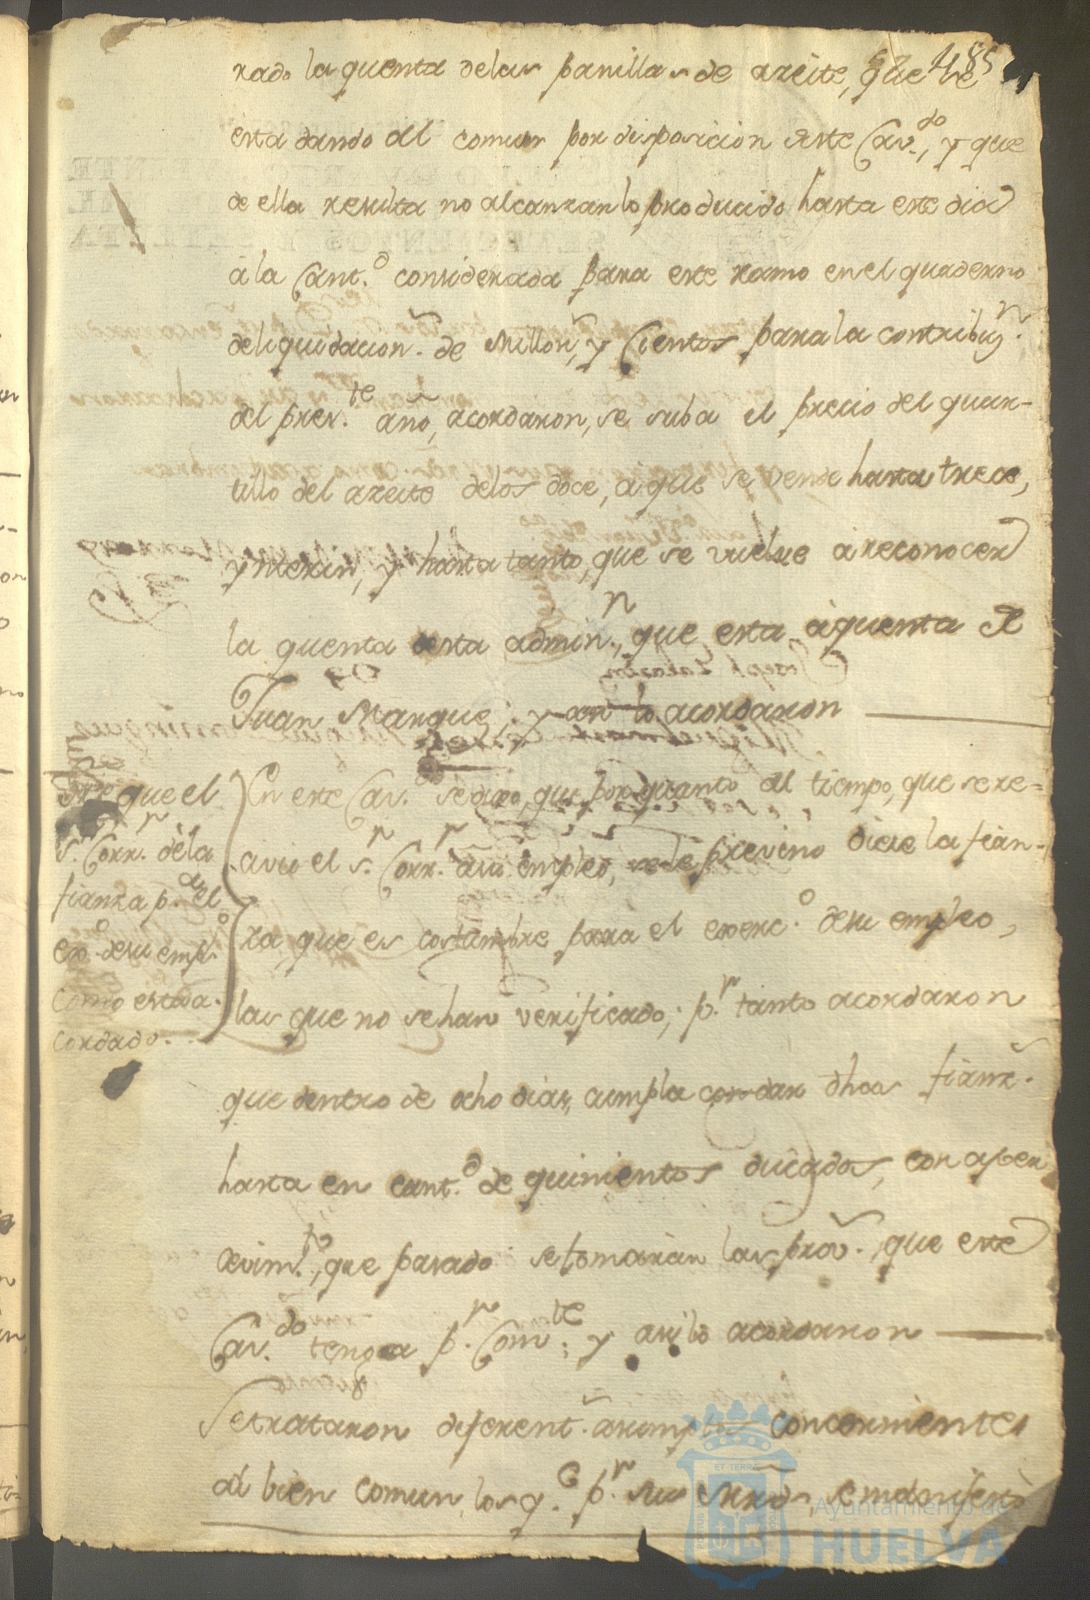 485
rado la quenta delas panillas de azeite, que se
esta dando al comun por disposicion deste Cav.do, y que
de ella resulta no alcanzan lo producido hasta este dia
à la Cant.d considerada para este ramo en el quaderno
deliquidacion. de Millon.s, y Cientos para la contribuz.n
del pres.te año, acordaron, se suba el precio del quar-
tillo del azeite delos doce, à que se vende hasta trece,
ynterin, y hasta tanto, que se vuelve à reconocer
la quenta desta admin.n, que esta à quenta de
Juan Marque; y asi lo acordaron
Sre que el
s.r Corr.r dèla
fianza p.a el
exº. desu empº.
como estava a-
cordado.
En este Cav.º se dixo, que, por quanto al tiempo, que se re-
avio el s.r Corr.r a su empleo, se le previno diese la fian-
za, que es costumbre para el exerc.º desu empleo,
las que no sehan verificado; p.r tanto acordaron
que dentro de ocho dias, cumpla con dar dhas fianz.
hasta en cant.d de quinientos ducados, con aper
cevim.to, que pasado se tomaràn las prov., que este
Cav.do tenga p.r Com.te; y asi lo acordaron
Setrataron diferent. exemplos concernientes
al bien comun, los q.e p.r sus Mrds, se manifestò
Ayuntamiento de
HUELVA